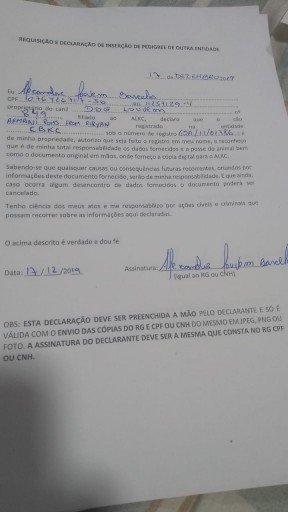 REQUISIÇÃO E DECLARAÇÃO DE INSERÇÃO DE PEDIGREE DE OUTRA ENTIDADE
17 de DEZEMBRO 2019
Eu Alexandre Jouvem Barcelho
CPF RG
proprietário do canil DOS Jouvem nº
849 filiado ao ALKC, declaro que o cão
ARMANI registrado na entidade
CBKC sob o número de registro
de minha propriedade, autorizo que seja feito o registro em meu nome, e reconheço
que é de minha total responsabilidade os dados fornecidos e a posse do animal bem
como o documento original em mãos, onde forneço a cópia digital para o ALKC.
Sabendo-se que quaisquer causas ou consequências futuras recorrentes, oriundos por
informações deste documento fornecido, serão de minha responsabilidade. E que ainda,
caso ocorra algum desencontro de dados fornecidos o documento poderá ser
cancelado.
Tenho ciência dos meus atos e me responsabilizo por ações cíveis e criminais que
possam recorrer sobre as informações aqui declaradas.
O acima descrito é verdade e dou fé
Data: 17/12/2019 Assinatura: Alexandre Jouvem
(Igual ao RG ou CNH)
OBS: ESTA DECLARAÇÃO DEVE SER PREENCHIDA A MÃO PELO DECLARANTE E SÓ É
VÁLIDA COM O ENVIO DAS CÓPIAS DO RG E CPF OU CNH DO MESMO EM JPEG, PNG OU
FOTO. A ASSINATURA DO DECLARANTE DEVE SER A MESMA QUE CONSTA NO RG CPF
OU CNH.